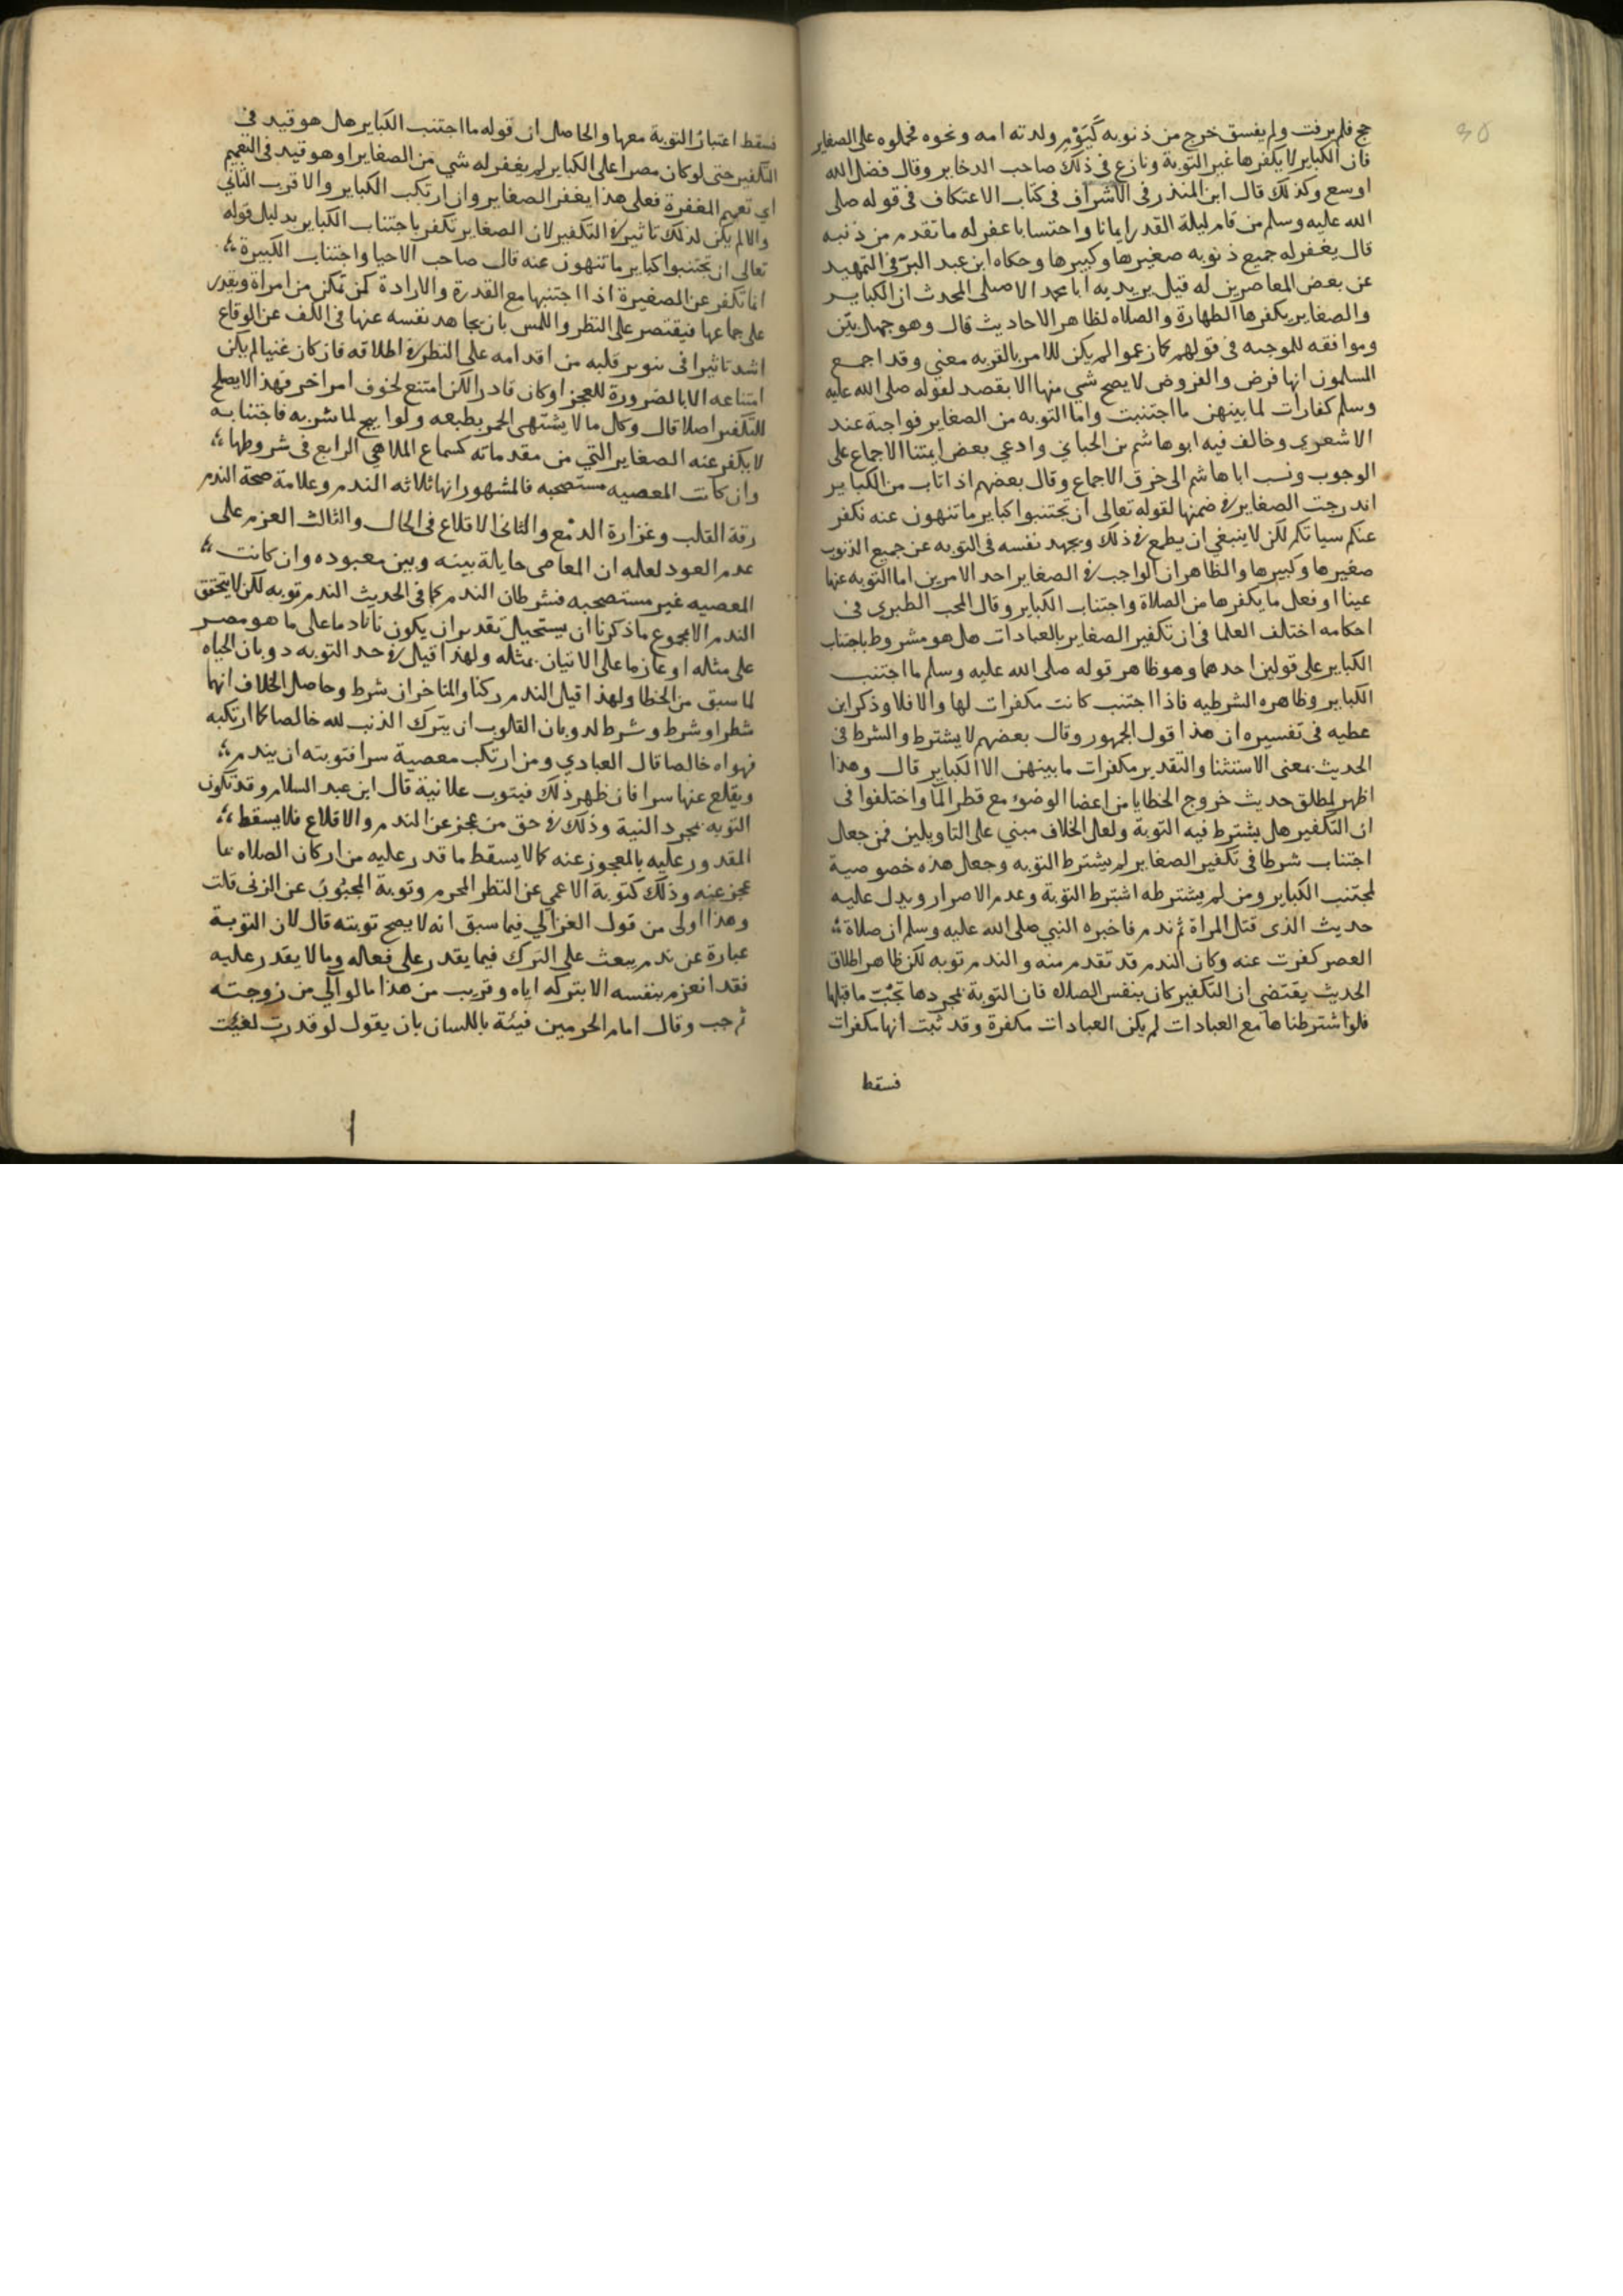 حج فلم يرفث ولم يفسق خرج من ذنوبه كَيَوْمِ ولدته امه ونحوه فحملوه على الصغاير
فان الكباير لا يكفرها غير التوبة ونازع في ذلك صاحب الدخاير وقال فضل الله
اوسع وكذلك قال ابن المنذر في الاشراف في كتاب الاعتكاف في قوله صلى
الله عليه وسلم من قام ليلة القدر ايمانا واحتسابا غفر له ما تقدم من ذنبه
قال يغفر له جميع ذنوبه صغيرها وكبيرها وحكاه ابن عبد البرّ في التمهيد
عن بعض المعاصرين له قيل يريد به ابا محمد الاصيلى المحدث ان الكباير
والصغاير يكفرها الطهارة والصلاه لظاهر الاحاديث قال وهو جهل بيّن
وموافقه للموجبه في قولهم كما زعموا لم يكن للامر بالتوبه معنى وقد اجمع
المسلمون انها فرض والفروض لا يصح شي منها الا بقصد لقوله صلى الله عليه
وسلم كفارات لما بينهن ما اجتنبت واما التوبه من الصغاير فواجبة عند
الاشعري وخالف فيه ابو هاشم بن الجباي وادعي بعض ايمتنا الاجماع على
الوجوب ونسب ابا هاشم الى خرق الاجماع وقال بعضهم اذا تاب من الكباير
اندرجت الصغاير في ضمنها لقوله تعالى ان تجتنبوا كباير ما تنهون عنه نكفر
عنكم سياتكم لكن لا ينبغي ان يطمع في ذلك ويجهد نفسه في التوبه عن جميع الذنوب
صغيرها وكبيرها والظاهر ان الواجب في الصغاير احد الامرين اما التوبه عنها
عينا او فعل ما يكفرها من الصلاة واجتناب الكباير وقال المحب الطبري في
احكامه اختلف العلما في ان تكفير الصغاير بالعبادات هل هو مشروط باجتناب
الكباير على قولين احدهما وهو ظاهر قوله صلى الله عليه وسلم ما اجتنب
الكباير وظاهره الشرطيه فاذا اجتنب كانت مكفرات لها والا فلا وذكر ابن
عطيه في تفسيره ان هذا قول الجمهور وقال بعضهم لا يشترط والشرط في
الحديث بمعنى الاستثنا والتقدير مكفرات ما بينهن الا الكباير قال وهذا
اظهر لمطلق حديث خروج الخطايا من اعضا الوضوء مع قطر المآ واختلفوا في
ان التكفير هل يشترط فيه التوبة ولعل الخلاف مبني على التاويلين فمن جعل
اجتناب شرطا في تكفير الصغاير لم يشترط التوبه وجعل هذه خصوصية
لمجتنب الكباير ومن لم يشترطه اشترط التوبة وعدم الاصرار ويدل عليه
حديث الذى قتل المراة ثم ندم فاخبره النبي صلى الله عليه وسلم ان صلاة
العصر كفرت عنه وكان الندم قد تقدم منه والندم توبه لكن ظاهر اطلاق
الحديث يقتضي ان التكفير كان بنفس الصلاه فان التوبة بمجردها تجُبّ ما قبلها
فلو اشترطناها مع العبادات لم يكن العبادات مكفرة وقد ثبت انها مكفرات
فسقط
فسقط اعتبارُ التوبة معها والحاصل ان قوله ما اجتنب الكباير هل هو قيد في
التكفير حتى لو كان مصرا على الكباير لم يغفر له شي من الصغاير او هو قيد في التعميم
اي تعميم المغفرة فعلى هذا يغفر الصغاير وان ارتكب الكباير والاقرب الثاني
والا لم يكن لذلك تاثير في التكفير لان الصغاير تكفر باجتناب الكباير بدليل قوله
تعالى ان تجتنبوا كباير ما تنهون عنه قال صاحب الاحيا واجتناب الكبيرة
انما تكفر عن الصغيرة اذا اجتنبها مع القدرة والارادة كمن تمكن من امراة وبقدر
على جماعها فيقتصر على النظر واللمس بان يجاهد نفسه عنها في الكف عن الوقاع
اشد تاثيرا في تنوير قلبه من اقدامه على النظر في اطلاقه فان كان غنيا لم يكن
امتناعه الا بالضرورة للعجز او كان قادرا لكن امتنع لخوف امر اخر فهذا لا يصلح
للتكفير اصلا قال وكل ما لا يشتهى الخمر بطبعه ولو ابيح لما شربه فاجتنابه
لا يكفر عنه الصغاير التي من مقدماته كسماع الملاهي الرابع في شروطها
وان كانت المعصيه مستصحبه فالمشهور انها ثلاثه الندم وعلامة صحة الندم
رقة القلب وغزارة الدمْع والثاني الاقلاع في الحال والثالث العزم على
عدم العود لعلمه ان المعاصى حايلة بينه وبين معبوده وان كانت
المعصيه غير مستصحبه فشرطان الندم كما في الحديث الندم توبه لكن لا يتحقق
الندم الا بمجموع ما ذكرنا ان يستحيل تقدير ان يكون نادما على ما هو مصر
على مثله او عازما على الاتيان بمثله ولهذا قيل في حد التوبه دوبان الحياه
لما سبق من الخطا ولهذا قيل الندم ركنا والمتاخران شرط وحاصل الخلاف انهما
شطر او شرط وشرط لدوبان القلوب ان يترك الذنب لله خالصا كما ارتكبه
فهواه خالصا قال العبادي ومن ارتكب معصية سرا فتوبته ان يندم
ويقلع عنها سرا فان ظهر ذلك فيتوب علانية قال ابن عبد السلام وقد تكون
التوبه بمجرد النية وذلك في حق من عجز عن الندم والاقلاع فلا يسقط
المقدور عليه بالمعجوز عنه كما لا يسقط ما قدر عليه من اركان الصلاه بما
عجز عنه وذلك كتوبة الاعمي عن النظر المحرم وتوبة المجبُوب عن الزنى قلت
وهذا اولى من قول الغزالي فيما سبق انه لا يصح توبته قال لان التوبة
عبارة عن ندم يبعث على الترك فيما يقدر على فعاله وما لا يقدر عليه
فقد انعزم بنفسه الا بتركه اياه وقريب من هذا ما لو آلي من زوجته
ثم جب وقال امام الحرمين فيئة باللسان بان يقول لو قدرت لفيئت